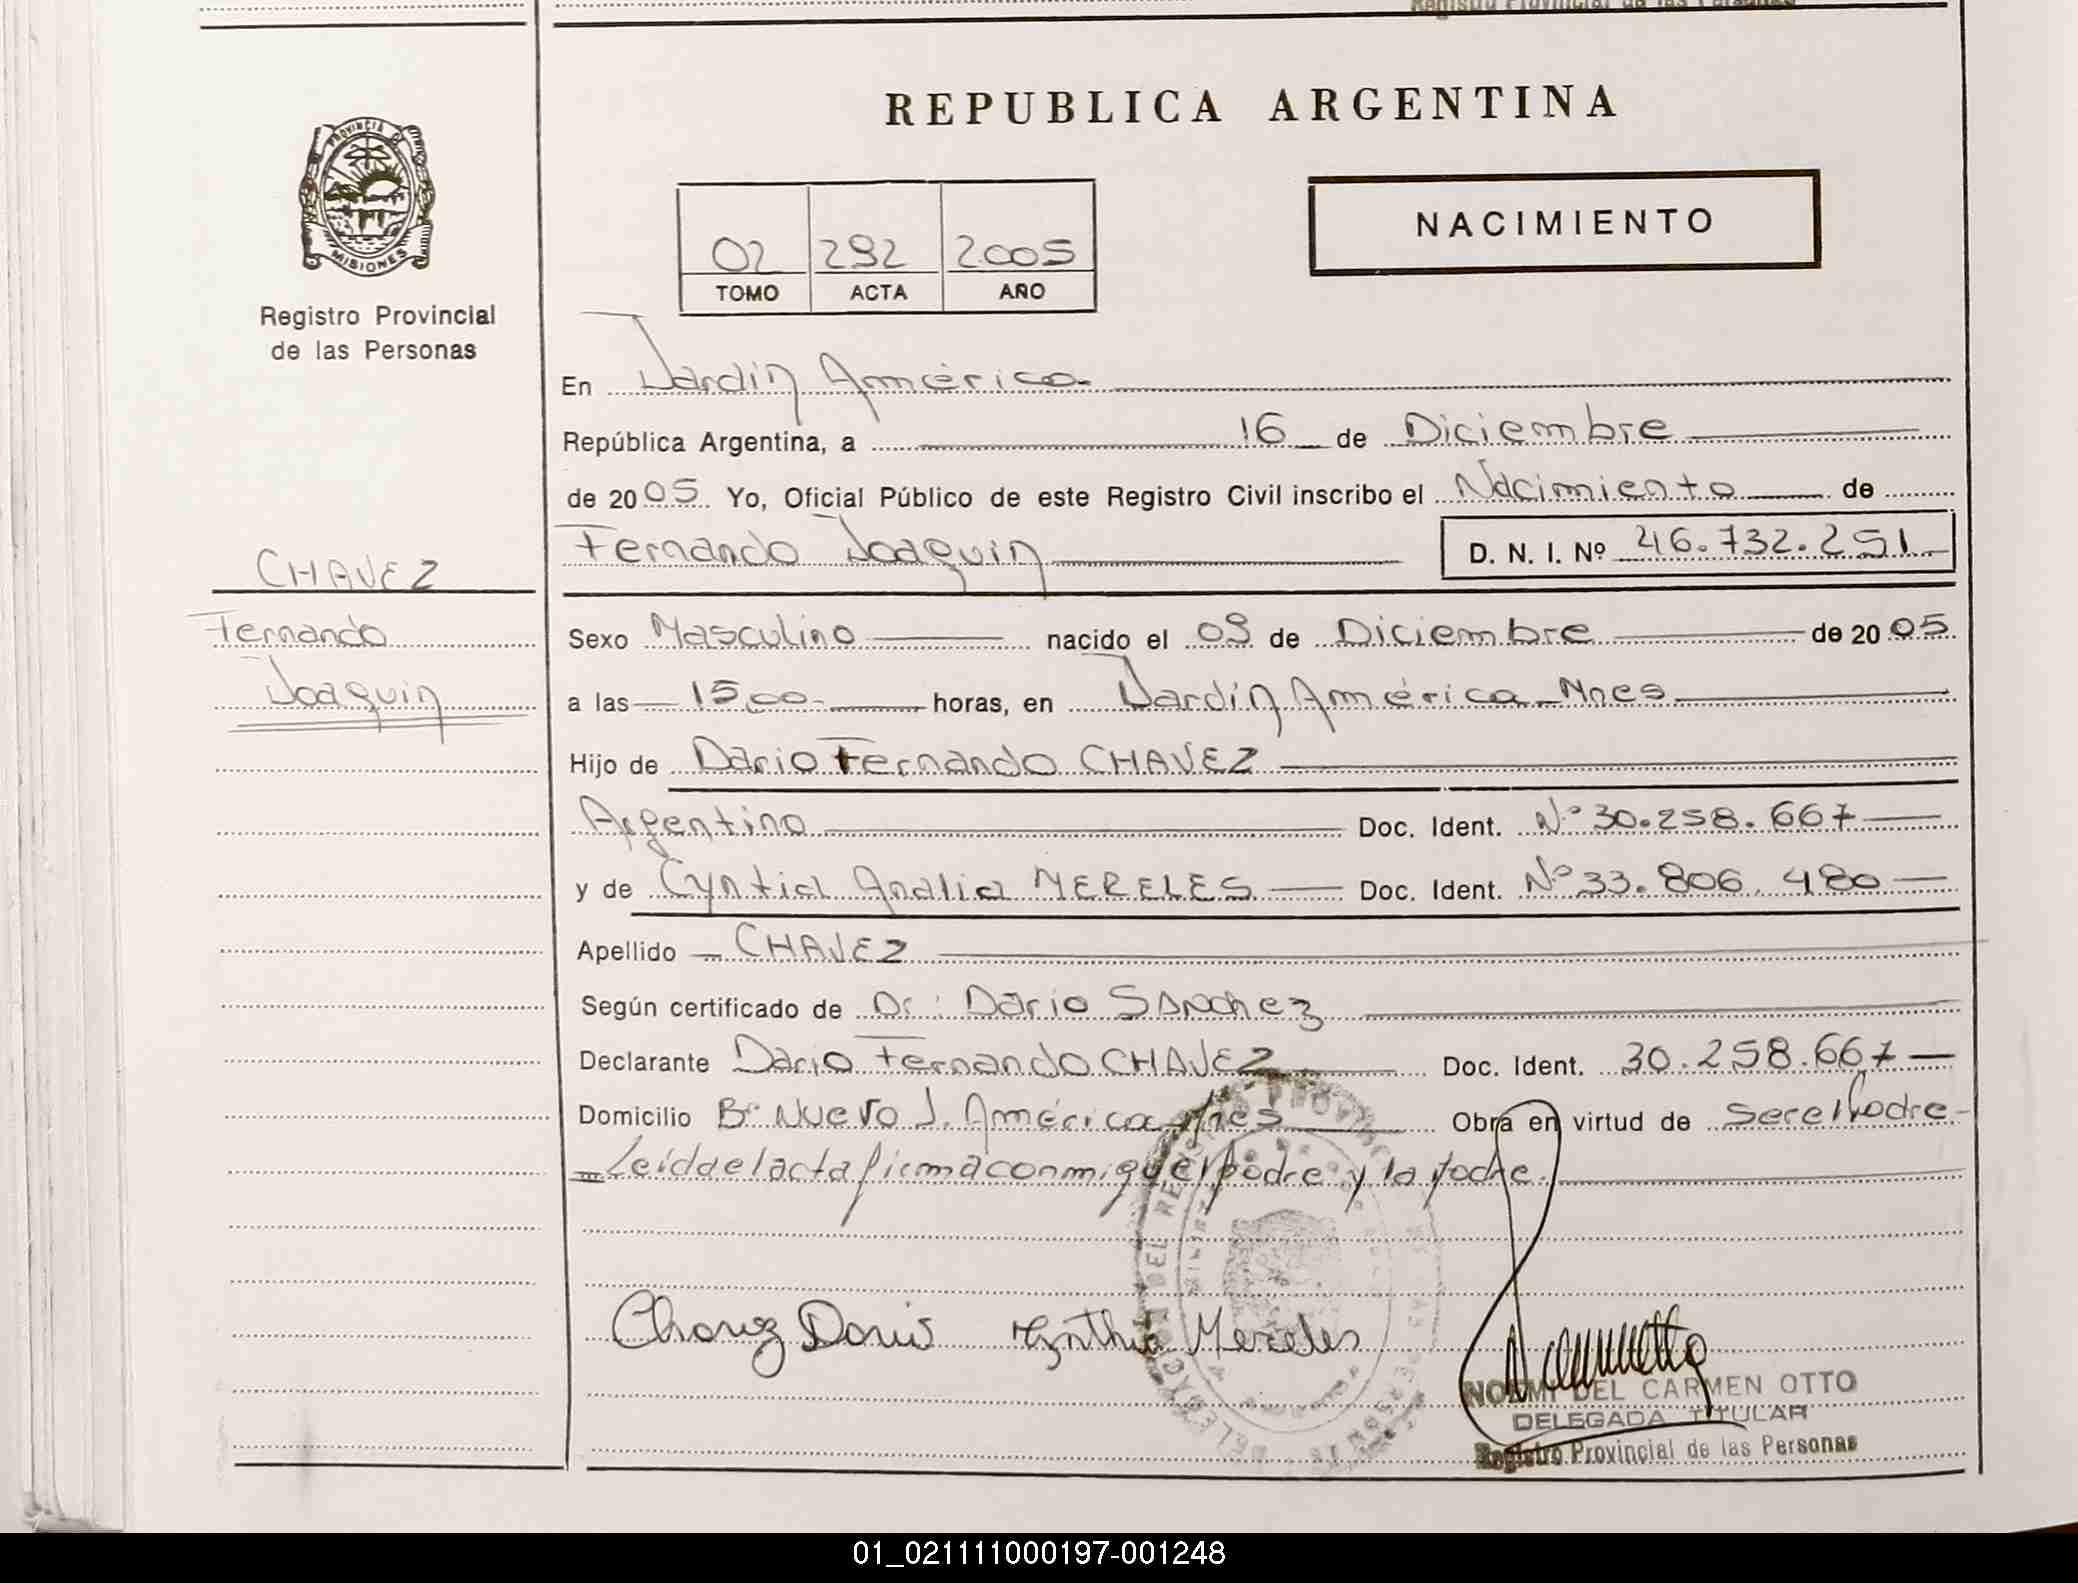 REPUBLICA ARGENTINA
PROVINCIA
MISIONES
Registro Provincial
de las Personas
NACIMIENTO
02 292 2005
TOMO ACTA AÑO
En Jardín América
República Argentina, a 16 de Diciembre
de 2005 Yo, Oficial Público de este Registro Civil inscribo el Nacimiento de
Fernando Joaquin D. N. I. Nº 46.732.251
CHAVEZ
Fernando
Joaquin
Sexo Masculino nacido el 09 de Diciembre de 2005
a las 15,00 horas, en Jardín América Mnes
Hijo de Dario Fernando CHAVEZ
Argentino Doc. Ident. Nº 30.258.667
y de Cyntia Analia MERELES Doc. Ident. Nº 33.806.480
Apellido CHAVEZ
Según certificado de Dr: Dario Sanchez
Declarante Dario Fernando CHAVEZ Doc. Ident. 30.258.667
Domicilio Bº Nuevo J. América Mnes Obra en virtud de ser el Padre
Leída el acta firma con migo el padre y la
Chavez Dario Cynthia Mereles
NOEMI DEL CARMEN OTTO
DELEGADA TITULAR
Registro Provincial de las Personas
01_021111000197-001248